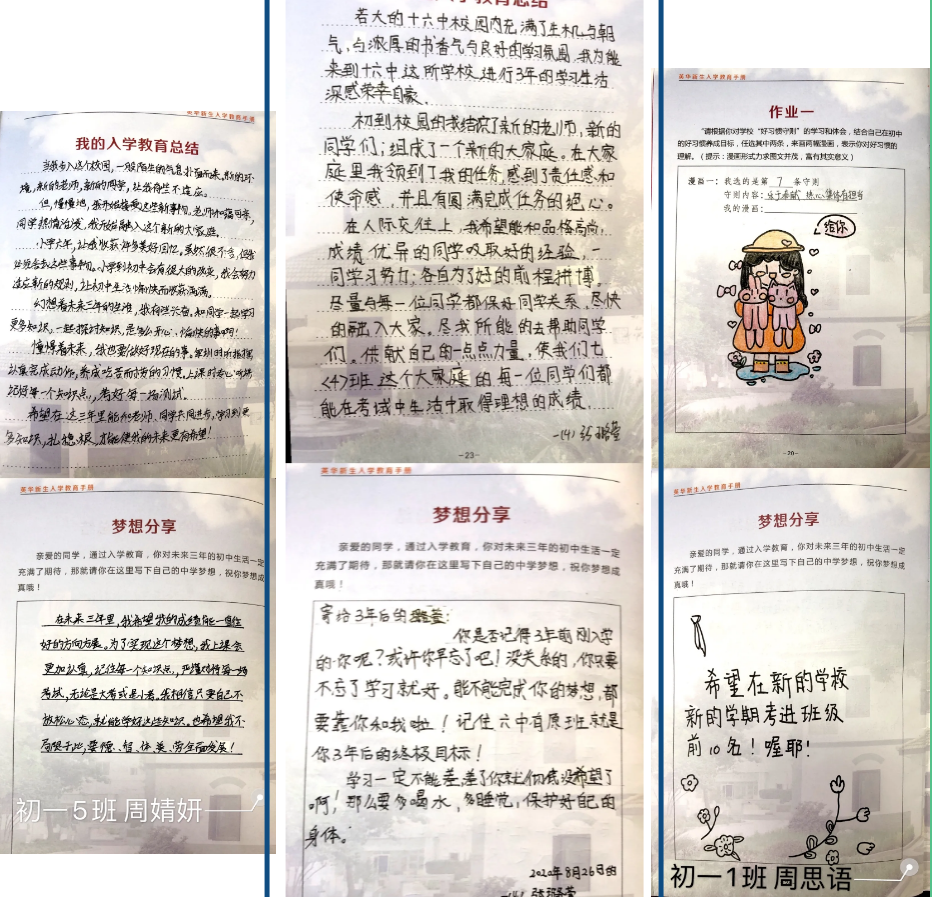 英华新生入学教育手册
我的入学教育总结
当我步入这个校园,一股陌生的气息扑面而来,新的环
境,新的老师,新的同学,让我有些不适应。
但,慢慢地,我开始接受这些新事物。老师和蔼
同学热情
小学六年,让我收获许多美好回忆。
适应新的规则,让初中生活愉快而收获满满。
幻想着未来三年的生活,我有些兴奋,和同学一起学习
更多知识,一起探讨知识,是多么开心、愉快的事啊!
憧憬着未来,我也要做好现在的事。
认真完成动作,养成吃苦耐劳的习惯,上课时专心听讲
记好每一个知识点,考好每一场测试。
希望在这三年里能和老师、同学共同进步,学习到更
多知识,
才能使我的未来更有希望!
英华新生入学教育手册
梦想分享
亲爱的同学,通过入学教育,你对未来三年的初中生活一定
充满了期待,那就请你在这里写下自己的中学梦想,祝你梦想成
真哦!
在未来三年里,我希望我的成绩能一直往
好的方向发展。为了实现这个梦想,我上课会
更加认真,记住每一个知识点,严谨对待每一场
考试,无论是大考或是小考。我相信只要自己不
放松心态,就能学好这些知识。也希望我不
局限于此,要德、智、体、美、劳全面发展!
初一5班 周婧妍
教育总结
若大的十六中校园内充满了生机与朝
气,与浓厚的书香气与良好的学习氛围,我为能
来到十六中这所学校,进行3年的学习生活
深感荣幸自豪。
初到校园的我结识了新的老师,新的
同学们;组成了一个新的大家庭。在大家
庭里我领到了我的任务,感到了责任感和
使命感,并且有圆满完成任务的决心。
在人际交往上,我希望能和品格高尚,
成绩优异的同学吸取好的经验,一
同学习努力;各自为了好的前程拼搏。
尽量与每一位同学都保好同学关系,尽快
的融入大家。尽我所能的去帮助同学
们。供献自己的一点点力量,使我们七
<4>班这个大家庭的每一位同学们都
能在考试中生活中取得理想的成绩。
-23-
英华新生入学教育手册
梦想分享
亲爱的同学,通过入学教育,你对未来三年的初中生活一定
充满了期待,那就请你在这里写下自己的中学梦想,祝你梦想成
真哦!
寄给3年后的
你是否记得3年前刚入学
的你呢?或许你早忘了吧!没关系的,你只要
不忘了学习就好。能不能完成你的梦想,都
要靠你和我啦!记住六中首原班就是
你3年后的终极目标!
学习一定不能差,差了你就彻底没希望了
啊!那么要多喝水,多睡觉,保护好自己的
身体。
2020年8月26日的
英华新生入学教育手册
作业一
"请根据你对学校"好习惯守则"的学习和体会,结合自己在初中
的好习惯养成目标,任选其中两条,来画两幅漫画,表示你对好习惯的
理解。(提示:漫画形式力求图文并茂,富有其实意义)
漫画一:我选的是第 7 条守则
守则内容:乐于奉献 热心集体有担当
我的漫画:
给你
-20-
英华新生入学教育手册
梦想分享
亲爱的同学,通过入学教育,你对未来三年的初中生活一定
充满了期待,那就请你在这里写下自己的中学梦想,祝你梦想成
真哦!
希望在新的学校
新的学期考进班级
前10名!喔耶!
初一1班 周思语